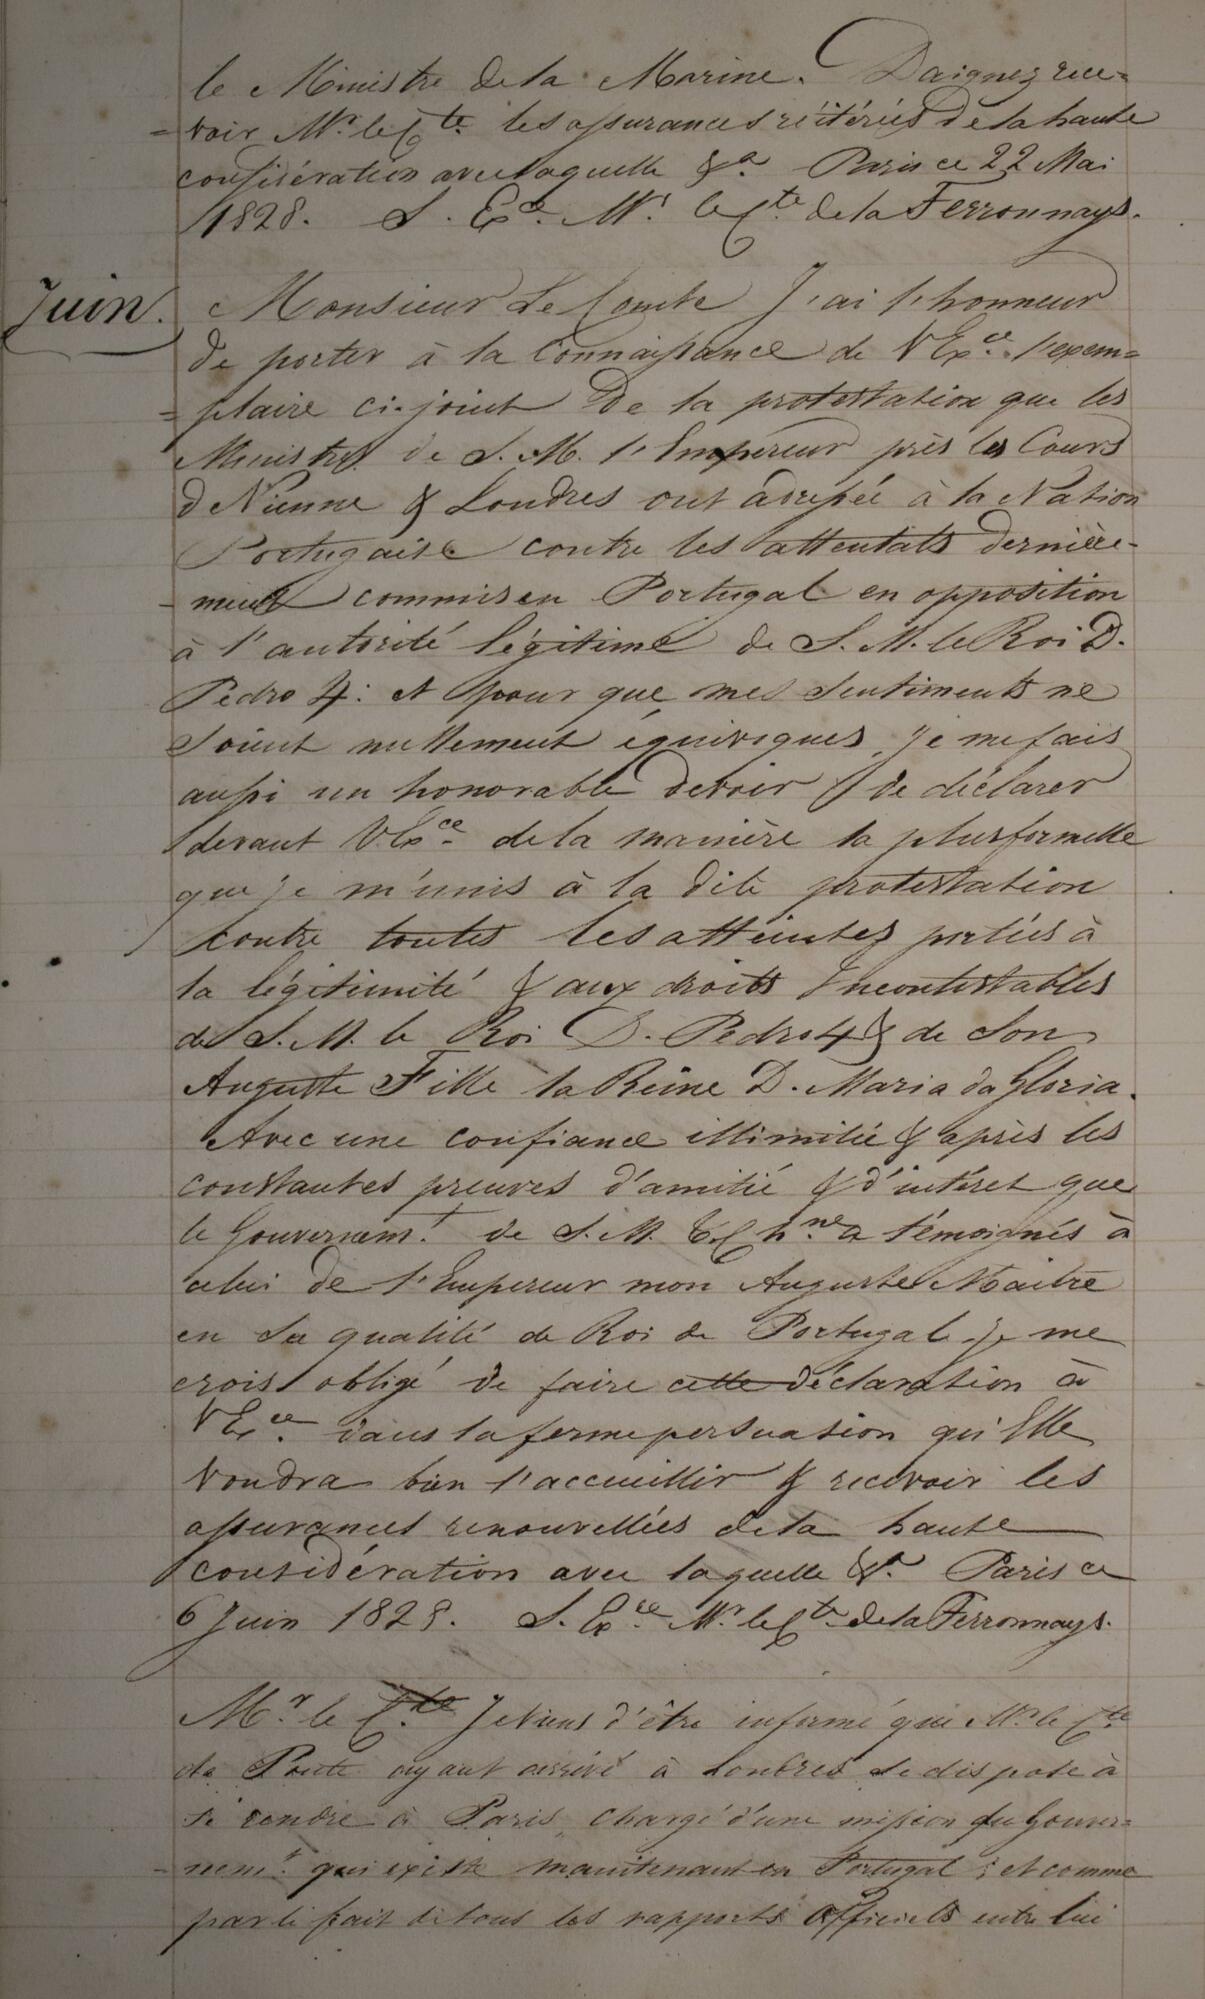 le Ministre de la Marine. Daignez rece=
=voir Mr. le Cte. les assurances réitérées de la haute
considération avec laquelle &a. Paris ce 22 Mai
1828. S. Exce. Mr. le Cte. de la Ferronnays.
Juin.
Monsieur Le Comte J'ai l'honneur
de porter à la connaissance de V Exce. l'exem=
=plaire ci-joint de la protestation que les
Ministres de S. M. l'Empereur près les Cours
de Vienne & Londres ont adressée à la Nation
Portugaise contre les attentats dernière-
-ment commis en Portugal en opposition
à l'autorité légitime de S. M. le Roi D.
Pedro 4: et pour que mes sentiments ne
soient nullement équivoques, je me fais
aussi un honorable devoir de déclarer
devant V. Exce. de la manière la plus formelle
que je m'unis à la dite protestation
contre toutes les atteintes portées à
la légitimité & aux droits incontestables
de S. M. le Roi D. Pedro 4 & de Son
Auguste Fille la Reine D. Maria da Gloria.
Avec une confiance illimitée & après les
constantes preuves d'amitié & d'intéret que
le Gouvernemt. de S. M. T. C. hne a témoignés à
celui de l'Empereur mon Auguste Maitre
en Sa qualité de Roi de Portugal, je me
crois obligé de faire cette déclaration à
V Exce. dans la ferme persuasion qu'Elle
voudra bien l'accueillir & recevoir les
assurances renouvellées de la haute
considération avec laquelle &a. Paris ce
6 Juin 1828. S. Exce. Mr. le Cte de la Ferronnays.
Mr. le Cte. Je viens d'être informé que Mr. le Cte
da Ponte ayant arrivé à Londres se dispose à
se rendre à Paris, chargé d'une mission du Gouver=
-nemt. qui existe maintenant en Portugal; et comme
par le fait de tous les rapports officiels entre lui